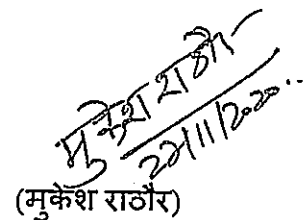 मुकेश राठौर
22/11/2020..
(मुकेश राठौर)